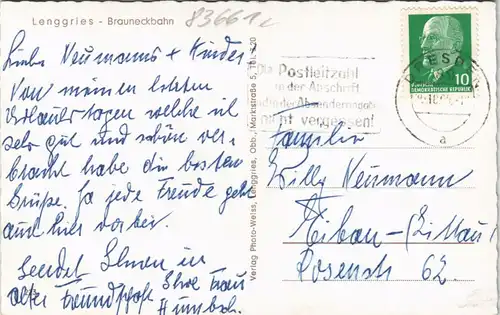 Lenggries - Brauneckbahn
83661c
Liebe Neumanns + Kinder
Von meinen letzten
Urlaubstagen welche ich
sehr gut und schön ver-
bracht habe die besten
Grüße. Ja jede Freude geht
auch hier vorbei.
Sendet Ihnen in
alter Freundschaft Ihre Frau
Humbsch.
Verlag Photo-Weiss, Lenggries, Obb., Marktstraße 5, Tel. 520
Die Postleitzahl
in der Anschrift
und in der Absenderangabe
nicht vergessen!
DRESDEN
a
10
DEUTSCHE
DEMOKRATISCHE REPUBLIK
Familie
Willy Neumann
Eibau-(Zittau)
Rosenstr 62.